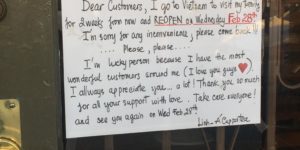 Dear Customers, I go to Vietnam to visit my family
for 2 weeks from now and REOPEN on Wednesday Feb 28th
I'm sorry for any inconvenience, please come back !!!
.... Please, please....
I'm lucky person because I have the most
wonderful customers around me (I love you guys ♥)
I always appreciate you... a lot! Thank you so much
for all your support with love.. Take care everyone!
and see you again on Wed Feb 28th
Linh -